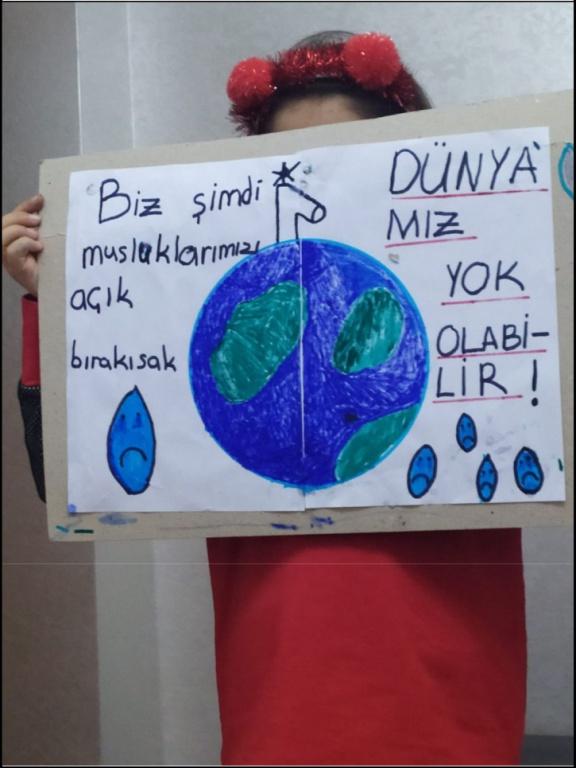 Biz şimdi
musluklarımızı
açık
bırakısak
DÜNYA
MIZ
YOK
OLABİ-
LİR !